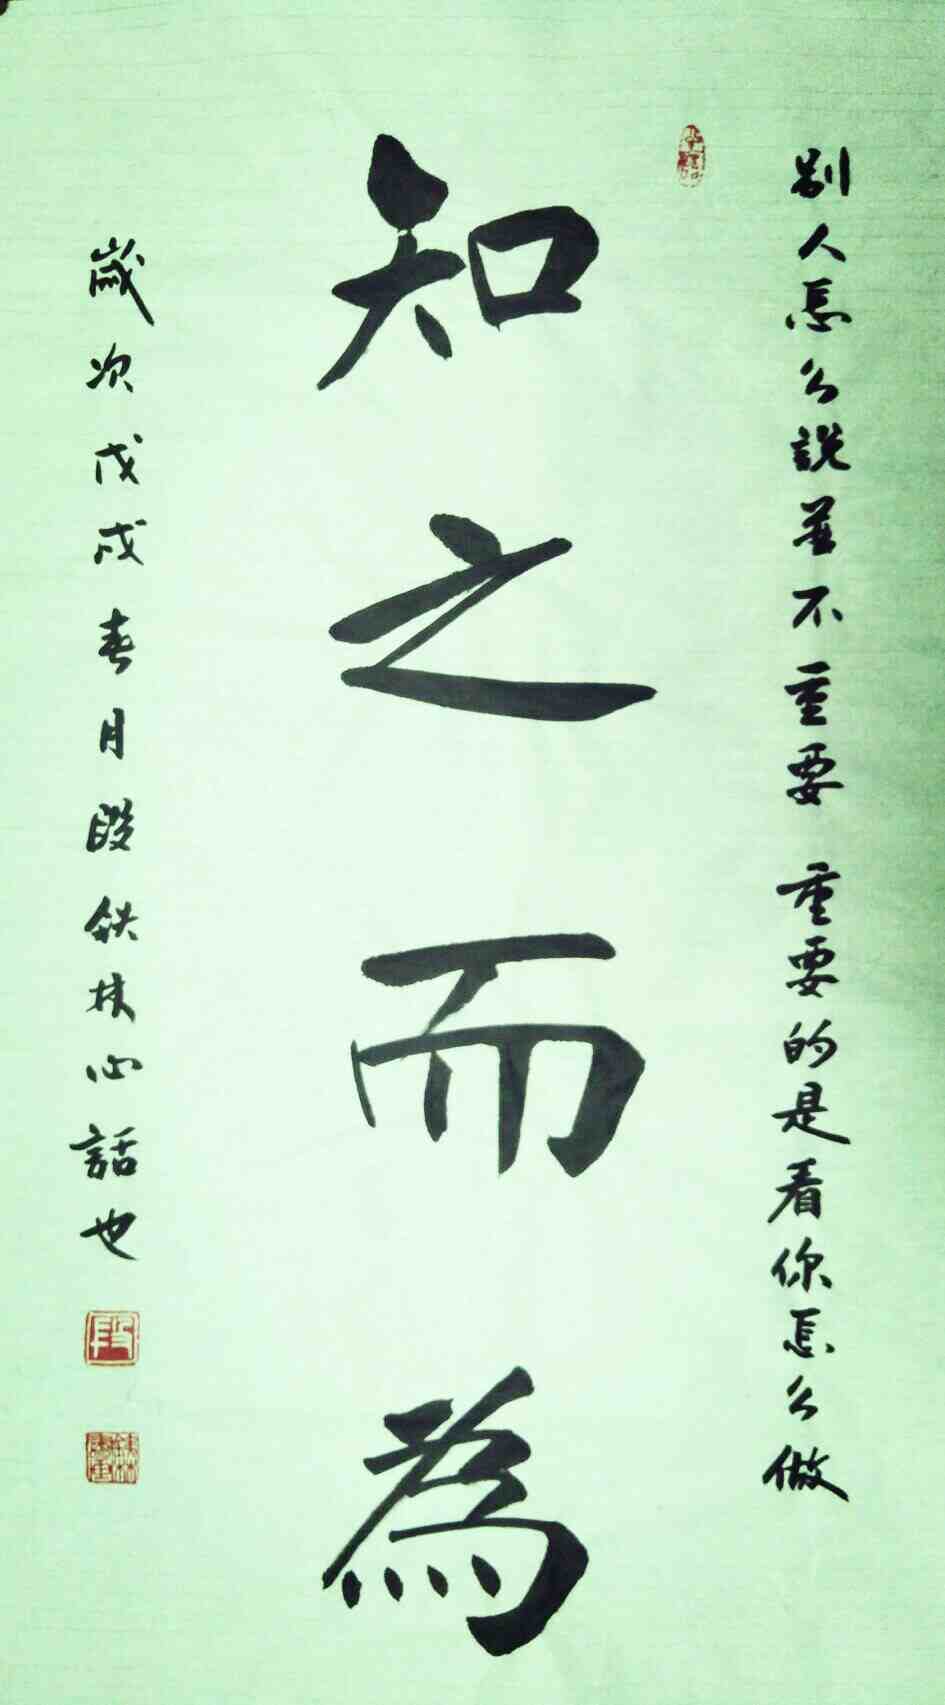 别人怎么說並不重要 重要的是看你怎么做
知之而為
歲次戊戌春月段鉄林心話也
段